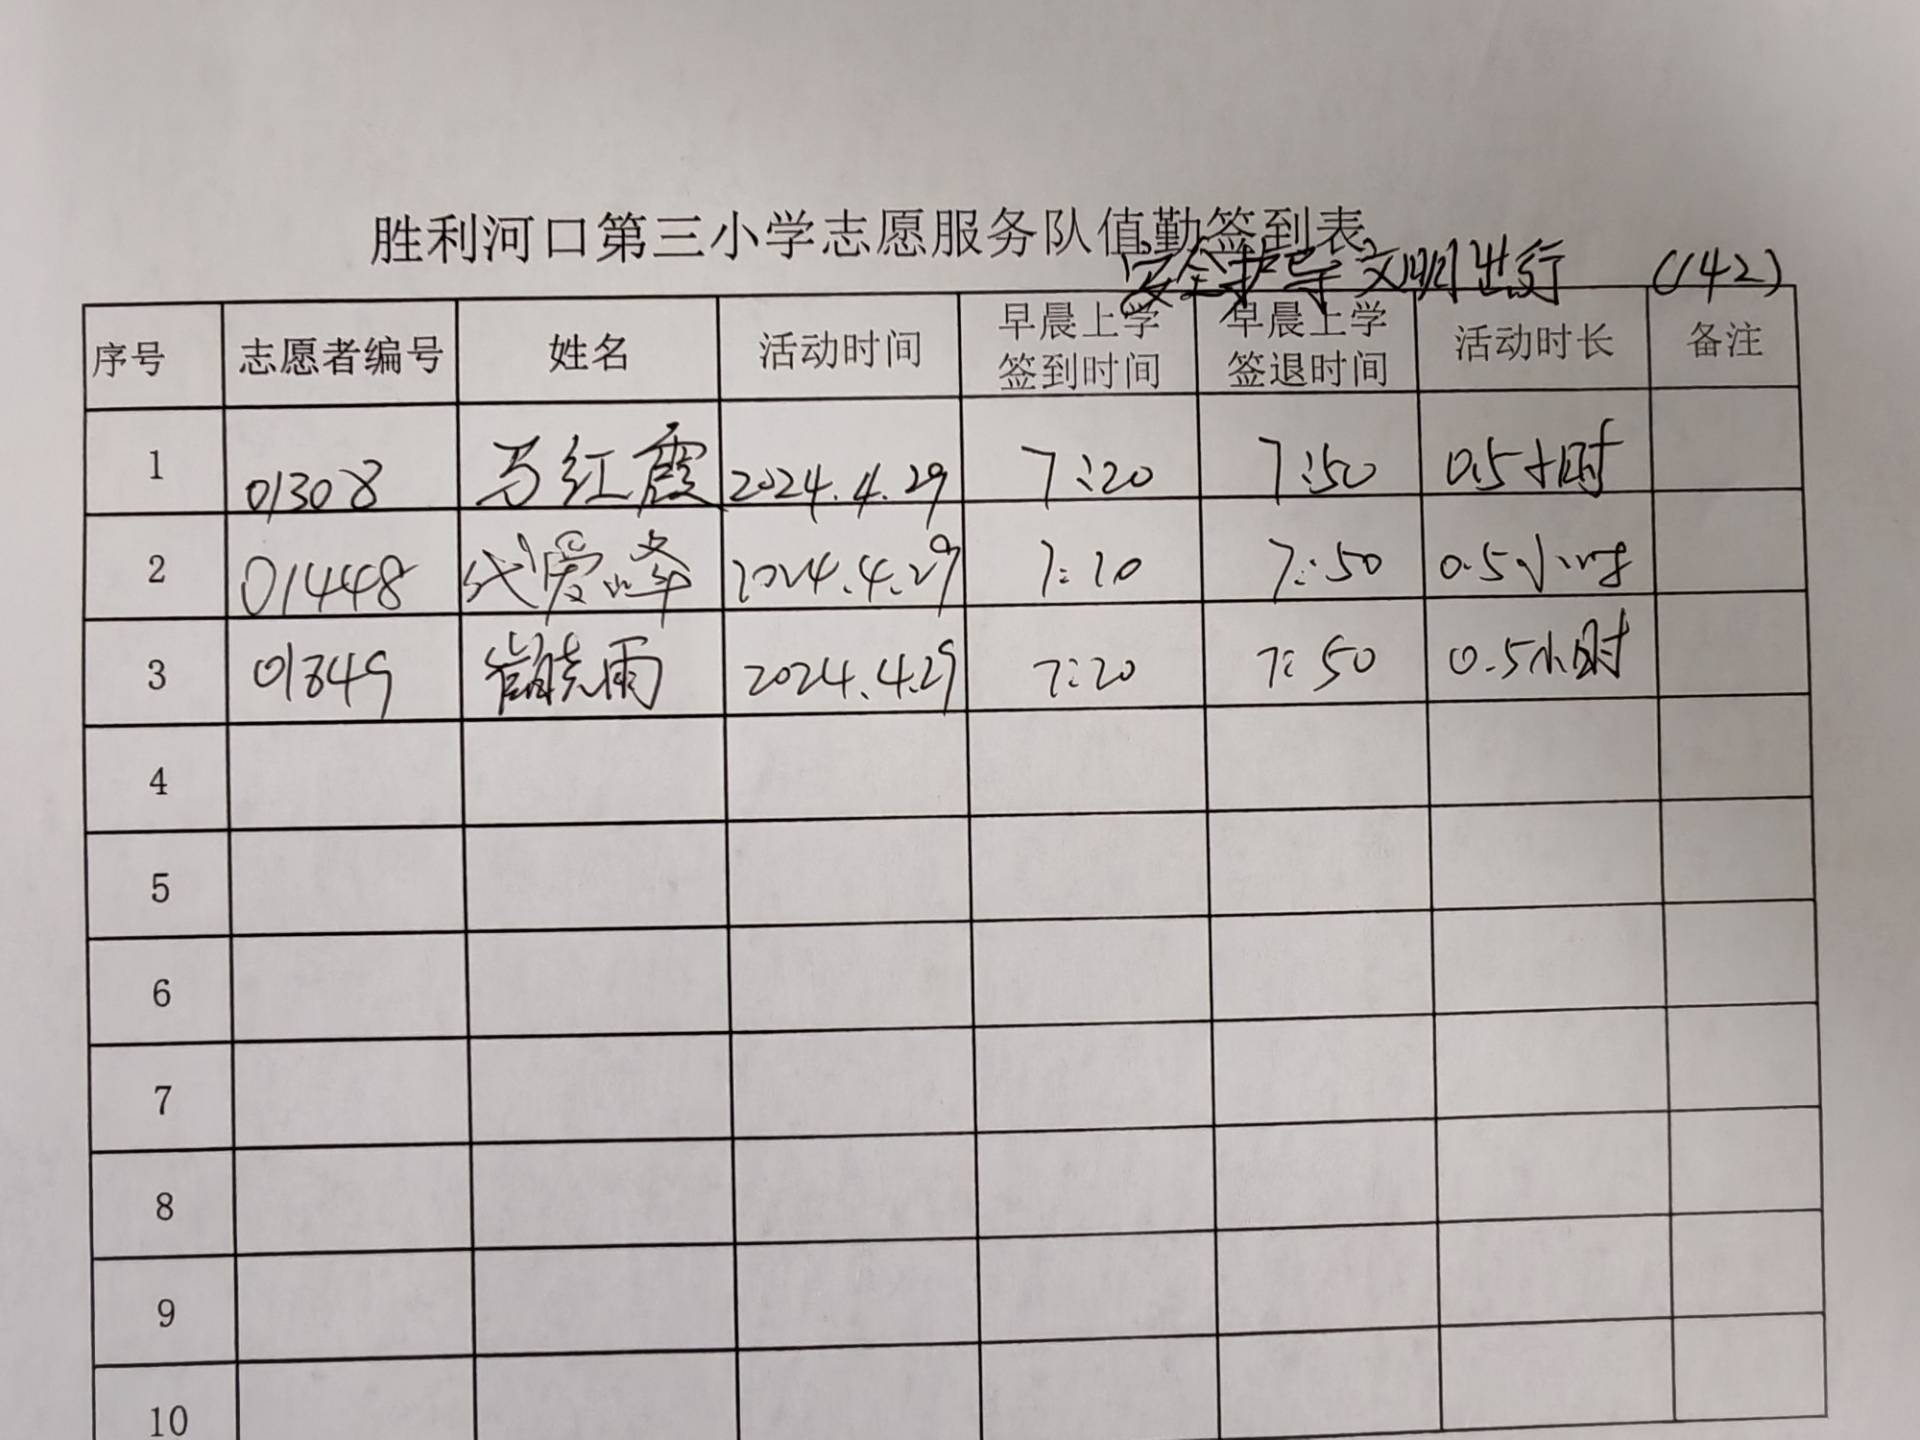 胜利河口第三小学志愿服务队值勤签到表
安全护导 文明出行 (142)
序号 志愿者编号 姓名 活动时间 早晨上学签到时间 早晨上学签退时间 活动时长 备注
1 01308 马红霞 2024.4.29 7:20 7:50 0.5小时
2 01448 代爱峰 2024.4.29 7:20 7:50 0.5小时
3 01349 崔晓雨 2024.4.29 7:20 7:50 0.5小时
4
5
6
7
8
9
10